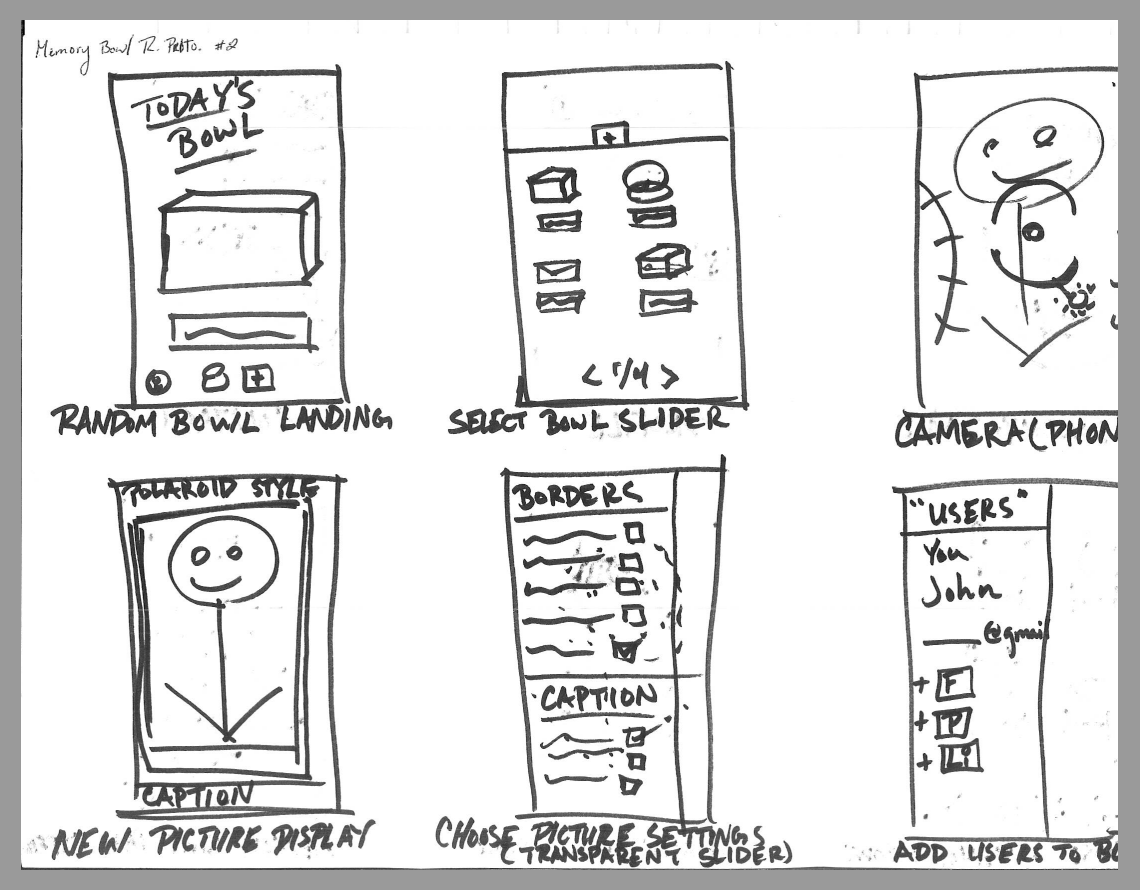 Memory Bowl R. Proto. #2
TODAY'S
BOWL
+
RANDOM BOWL LANDING
+
< 1/4 >
SELECT BOWL SLIDER
CAMERA (PHON
POLAROID STYLE
CAPTION
NEW PICTURE DISPLAY
BORDERS
CAPTION
CHOOSE PICTURE SETTINGS
(TRANSPARENT SLIDER)
"USERS"
You
John
@gmail
+ F
+ P
+ Li
ADD USERS TO BO